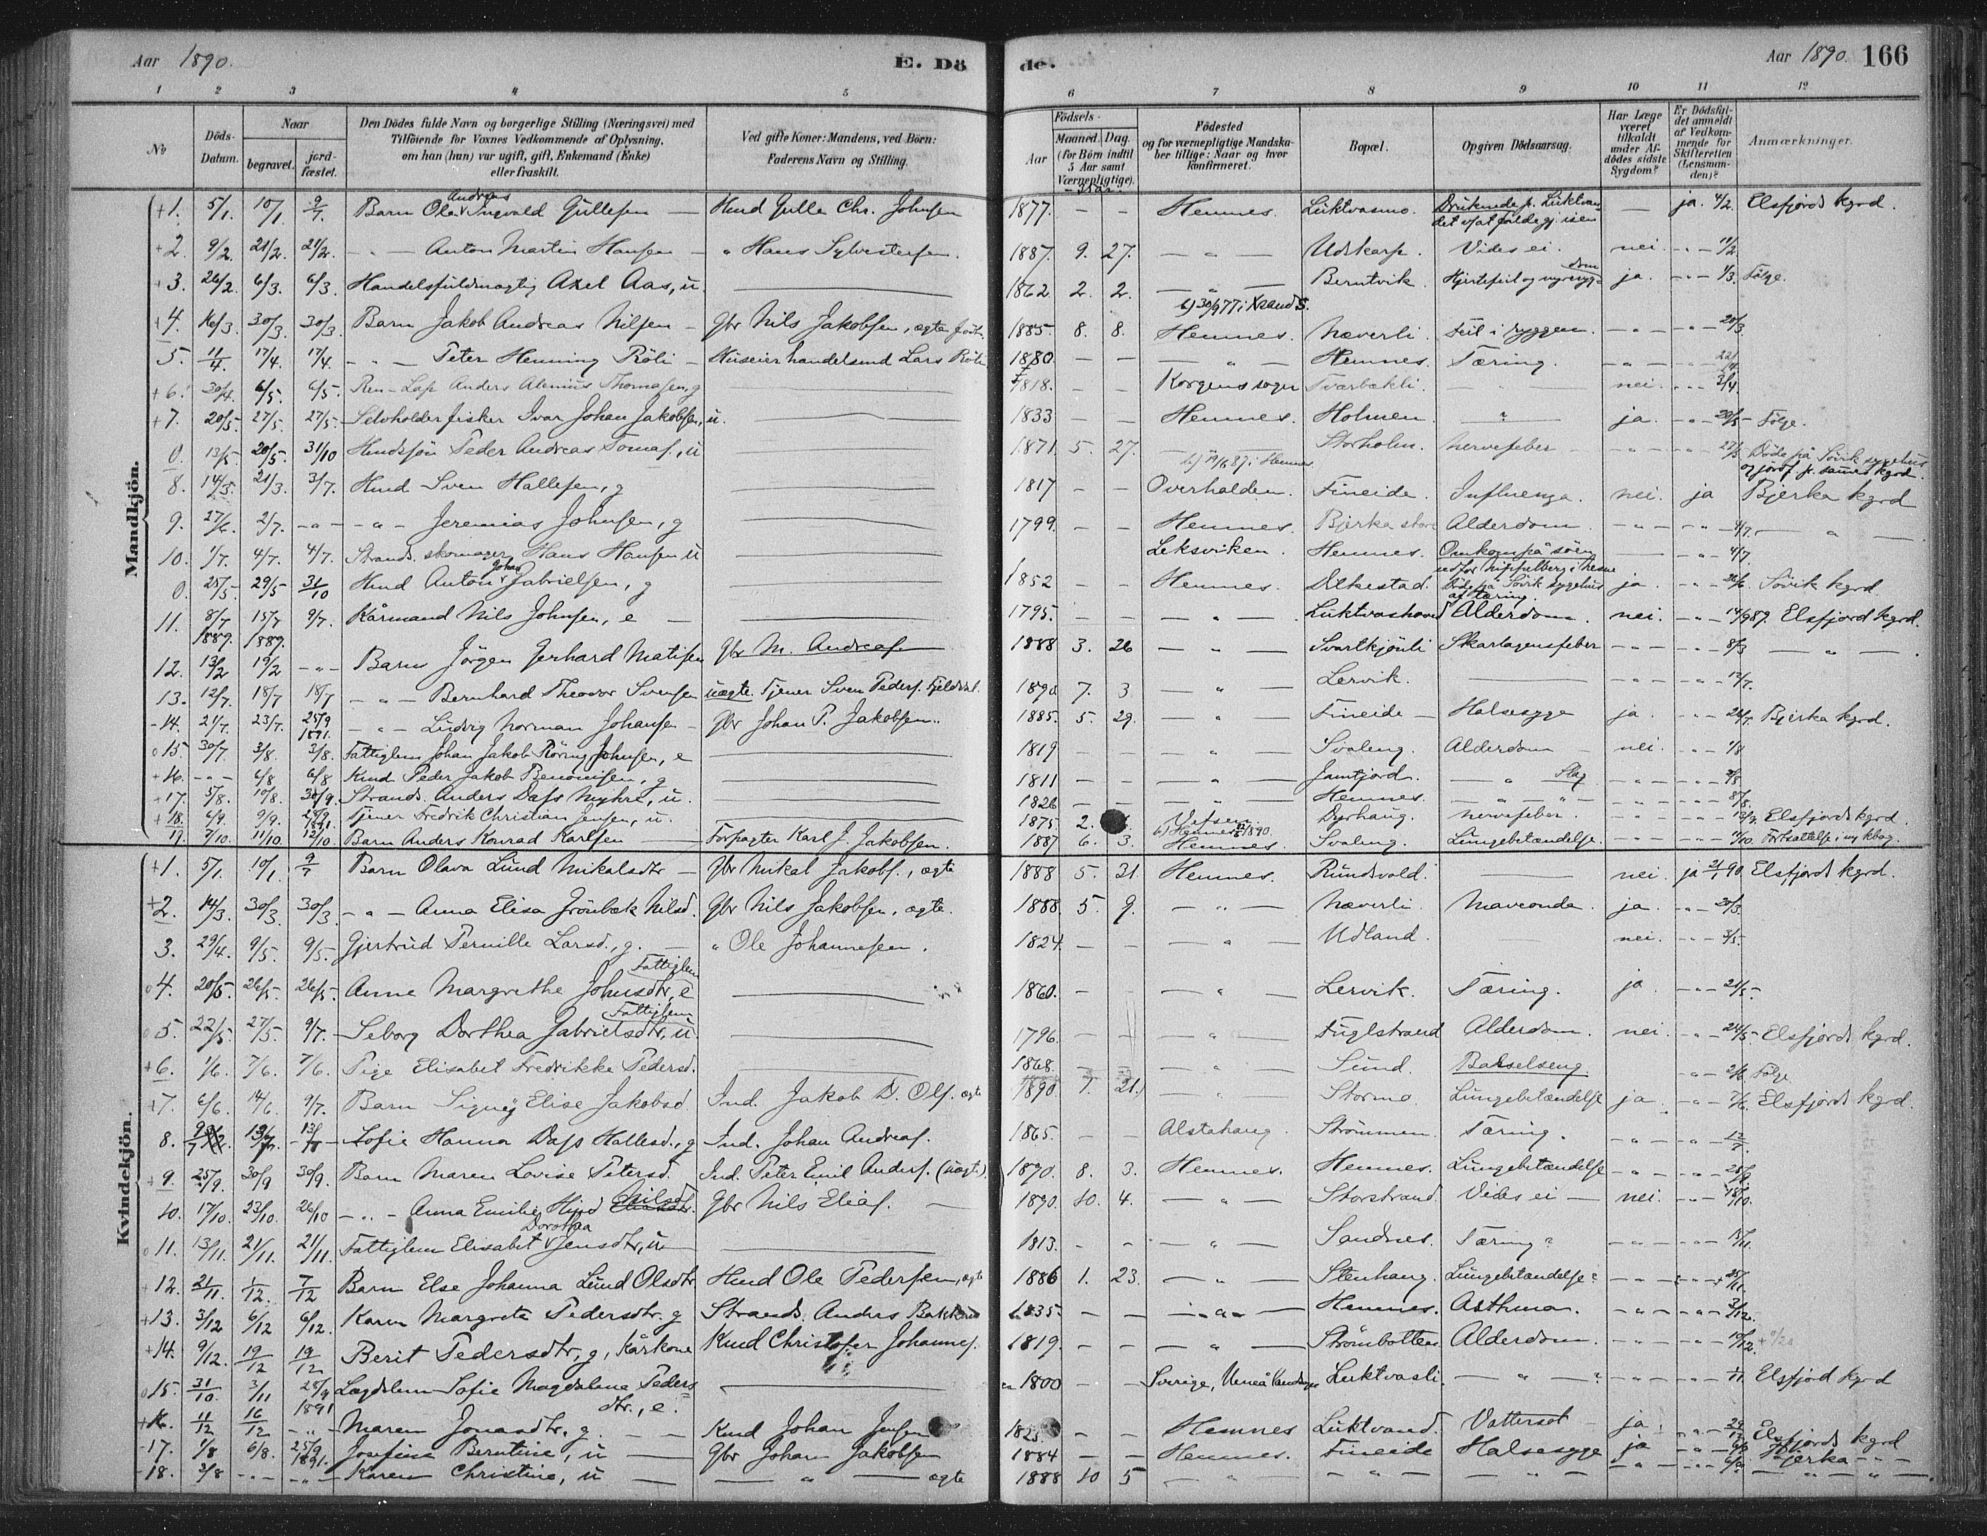 Aar 1890. E. Dö
de. Aar 1890. 166
1 2 3 4 5
6 7 8 9 10 11 12
No
Döds-Datum.
Naar
begravet.
jord-fæstet.
Den Dödes fulde Navn og borgerlige Stilling (Næringsvei) med
Tilföiende for Voxnes Vedkommende af Oplysning,
om han (hun) var ugift, gift, Enkemand (Enke)
eller fraskilt.
Ved gifte Koner: Mandens, ved Börn:
Faderens Navn og Stilling.
Födsels-
Aar
Maaned. Dag.
(for Börn indtil
5 Aar samt
Værnepligtige).
Födested
og for værnepligtige Mandska-
ber tillige: Naar og hvor
konfirmeret.
Bopæl.
Opgiven Dödsaarsag.
Har Læge
været
tilkaldt
under Af-
dödes sidste
Sygdom?
Er Dödsfal-
det anmeldt
af Vedkom-
mende for
Skifteretten
(Lensman-
den)?
Anmærkninger.
Mandkjön.
+1. 5/1. 10/1. 9/7. Barn Ola Andreas Ingvald Gullesen — Hmd Gulle Chr. Johnsen 1877. - - Hemnes. Luktvasmo. — ja. 4/2. Elsfjords kgrd.
+2 9/2. 21/2. 21/2. - - Anton Martin Hansen - " Hans Sylvestersen. 1887. 9. 27. - " - Utskarp. Vides ei. nei. - " -
+3. 26/2 6/3. 6/3. Handelsfuldmægtig Axel Aas, u. 1862 2. 2. - " - Berntvik. ja. - " - 1/3. Følge.
+4. 16/3. 30/3. 30/3. Barn Jakob Andreas Nilsen - Gbr Nils Jakobsen, ægte 1885. 8. 8. Hemnes. Næverli. Feil i ryggen. - " - - " - 20/3
5. 11/4. 17/4. 17/4. - " - Peter Henning Röli - Huseier handelsmd Lars Röli 1880. - - - " - Hemnes. Tæring. - " - - " -
+6. 30/4. 6/5. 6/5. Ren-Lap Anders Thomasen, g 1818. - - Korgens sogn Tværbækli. nei. - " -
+7. 20/5. 27/5. 27/5. Selvholder fisker Ivar Johan Jakobsen, u. 1833 - - Hemnes. Holmen. " ja. - " - 20/5 - Følge.
0. 13/5. 20/5. 31/10 Husmdsøn Peder Andreas Tomas., u 1871. 5. 27. Storholm. Nervefeber - " - - " - Døde på Sövik sygehus
og jordf. p. samme kgrd.
8. 14/5. 21/3. 3/7. Hmd Sven Hallesen, g 1817 - - Overhalden. Fineide. Influenza. nei. ja Bjerka kgrd
9. 27/6. 2/7. - " - - " - Jeremias Johnsen, g 1799. - - Hemnes. Bjerka store Alderdom. - " - - " - 8/7. - " -
10. 1/7. 4/7. 4/7. Strands. skomager Hans Hansen u Leksviken. Hemnes. Omkom på söen - " - 4/7.
0. 25/5. 29/5 31/10 Hmd Anton Johan Gabrielsen, g 1852 - - Hemnes. Alkestad. Död på Sövik sygehus af tæring. ja. - " - Sövik kgrd.
11. 8/7 15/7 9/7. Kårmand Nils Johnsen, e - 1795. - - - " - Alderdom. nei. - " - Elsfjord kgrd.
1889. 1889.
12. 13/2 19/2 - " - Barn Jörgen Gerhard Matisen Gbr M. Andreas. 1888 3. 26 - " - Svartkjönli Skarlagensfeber - " - - " - 8/3 - " -
13. 12/7. 18/7 18/7 - " - Bernhard Theodor Svensen uægte. Tjener Sven Peders. Fjeldal. 1890 7. 3 - " - Lervik. - " - - " - 17/7.
-14. 21/7. 23/7. 25/9 1891. - " - Ludvig Norman Johansen - Gbr Johan P. Jakobsen. 1885. 5. 29. " Fineide - Halsesyge ja. - " - 24/7. Bjerka kgrd.
o 15. 30/7. 3/8. 3/8. Fattiglem Johan Jakob Röring Johnsen, e 1819 - - " Svaleng. Alderdom - nei. - " - 1/8
+16. - " - 6/8 6/8 Kmd Peder Jakob Benonisen, g 1811 - - " Jamtjord. - " - Slag - " - - " - 2/8
+17. 5/8. 10/8. 30/9. Strands. Anders Dass Myhre, u. 1826 - - - " - Hemnes. - " - " - - " - - " -
+18. 6/9. 9/9. Tjener Fredrik Christian Jensen, u. 1875 2. Vefsen. Dyrhaug. Nervefeber. - " - Elsfjords kgrd.
19. 7/10. 11/10. 12/10. Barn Anders Konrad Karlsen - Forpagter Karl J. Jakobsen. 1887 6. 3. Hemnes. Svaleng. Lungebetændelse. - " - - " - 11/10. Fortsættelse i ny kbog.
Kvindekjön.
+1. 5/1. 10/1. 9/7 Barn Olava Lund Mikalsdtr - Gbr Mikal Jakobs., ægte 1888 5. 21. Hemnes. Rundvold. nei. ja Elsfjords kgrd.
+2. 14/3. 30/3. 30/3. - " - Anna Elisa Grönbæk Nilsd. Gbr Nils Jakobsen, ægte. 1888. 5. 9. - " - Næverli. ja. - " - 20/3.
3. 29/4. 9/5. 9/5. Gjertrud Pernille Larsd., g. - " Ole Johannesen. 1824. - - - " - Udland. nei. - " - 3/5.
o 4. 20/5. 26/5. 26/5. Anne Margrethe Johnsdtr, e Fattiglem 1860. - - " - Lervik. Tæring. ja - " - 21/5.
o 5. 22/5. 27/5. 9/7. Seborg Dorthea Gabrielsdtr, u. Fattiglem 1796. - - " Fuglstrand Alderdom. nei. - " - 24/5 - Elsfjords kgrd.
+6. 1/6. 7/6. 7/6. Pige Elisabet Fredrikke Pedersd. 1868. " Sund. Barselseng - " - 2/6 Følge
+7 6/6. 14/6. 9/7. Barn Signy Elise Jakobsd Ind. Jakob D. Ols. ægte 1890 7. 21. " Stormo. Lungebetændelse ja - " - 7/6. Elsfjords kgrd.
8. Sofie Hanna Dass Hallesd., g Ind. Johan Andreas. 1865. - - Alstahaug. Strømmen. Tæring. - " - - " -
+9. 25/9. 30/9 30/9. Barn Maren Lovise Petersd. Ind. Peter Emil Anders. (uægte) 1890. 8. 3. Hemnes. Hemnes. Lungebetændelse - " - - " -
10. 17/10. 23/10. 26/10 - " - Anna Emilie Hjord Nilsd. Gbr Nils Elias. - 1890 10. 4. - " - Storstrand Vides ei - nei. - " -
o 11. 13/11. 21/11. 21/11. Fattiglem Elisabet Dorothea Jensdtr, u 1813. - - - " - Sandnes. Tæring? - " - - " -
+12. 21/11. 1/12. 7/12 Barn Else Johanna Lund Olsdtr Hmd Ole Pedersen, ægte 1886 1. 23. - " - Stenhaug. Lungebetændelse? - " - - " -
+13. 3/12 6/12 6/12. Karen Margreta Pedersdtr. g Strands. Anders Bakke 1835 - - - " - Hemnes. Asthma. - " - - " - 3/12.
+14. 9/12. 19/12 19/12 Berit Pedersdtr, g, Kårkone Kmd Christofer Johannes. 1819. - - - " - Strömbotten Alderdom. - " - - " -
o 15. 31/10. 3/11 Lægdslem Sofie Magdalene Peders=
1891 dtr., e.
1800 - - Sverige, Luktvasli. - " - - " - - " - Elsfjord kgrd
+16. 11/12 16/12 - " - Maren Jonasdtr, g. - - Kmd Johan Jensen 1825 - Hemnes Luktvand. Vattersot - ja. - " - Elsfjords kgrd
-17. 1/8 6/8. 25/9 1891. Josefine Berntine, u - Gbr Johan Jakobsen 1884 - - Hemnes. Fineide Halsesyge ja - " - Bjerka - " -
-18. 3/8 - " - - " - Karen Christine, u - " - ægte 1888 10 5 - " - - " - - " - - " - - " -